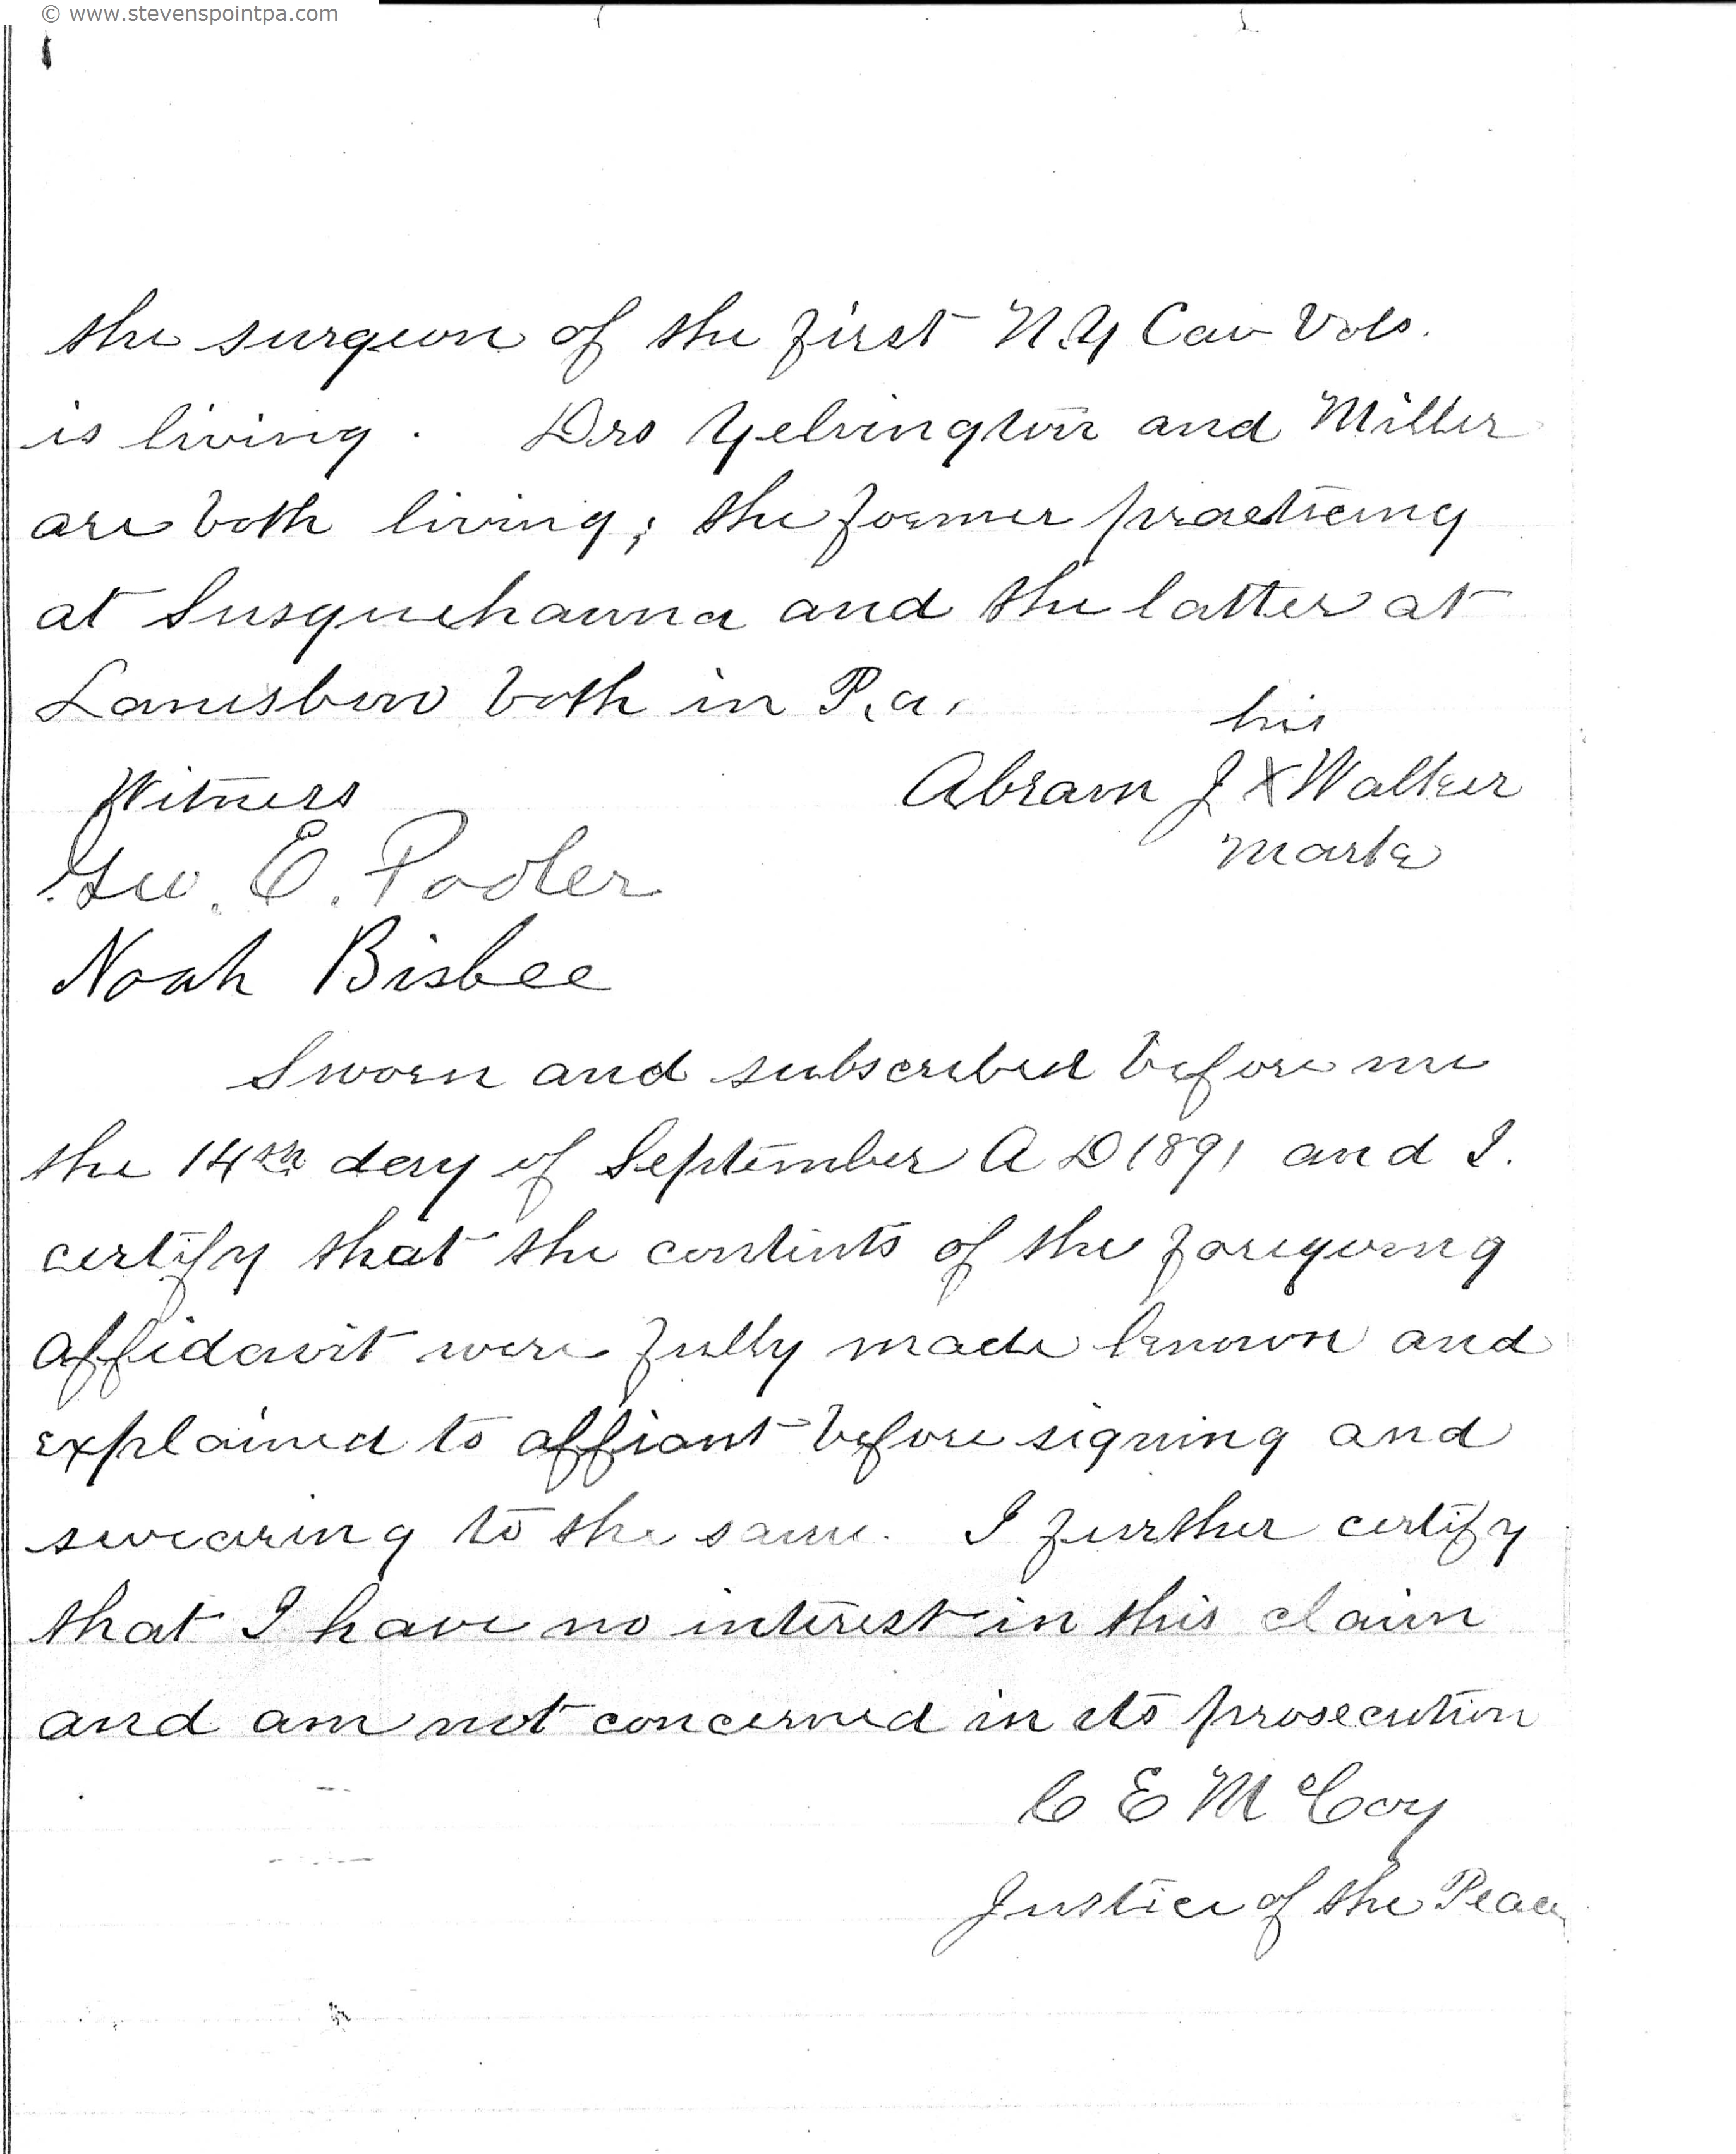 © www.stevenspointpa.com
the surgeon of the first N.Y Cav Vols.
is living. Drs Yelvington and Miller
are both living; the former practicing
at Susquehanna and the latter at
Lanesboro both in P.a.
his
Witness
Abram J X Walker
mark
Geo. E. Pooler
Noah Bisbee
Sworn and subscribed before me
the 14th day of September A D 1891 and I.
certify that the contents of the foregoing
affidavit were fully made known and
explained to affiant before signing and
swearing to the same. I further certify
that I have no interest in this claim
and am not concerned in its prosecution
C E McCoy
Justice of the Peace